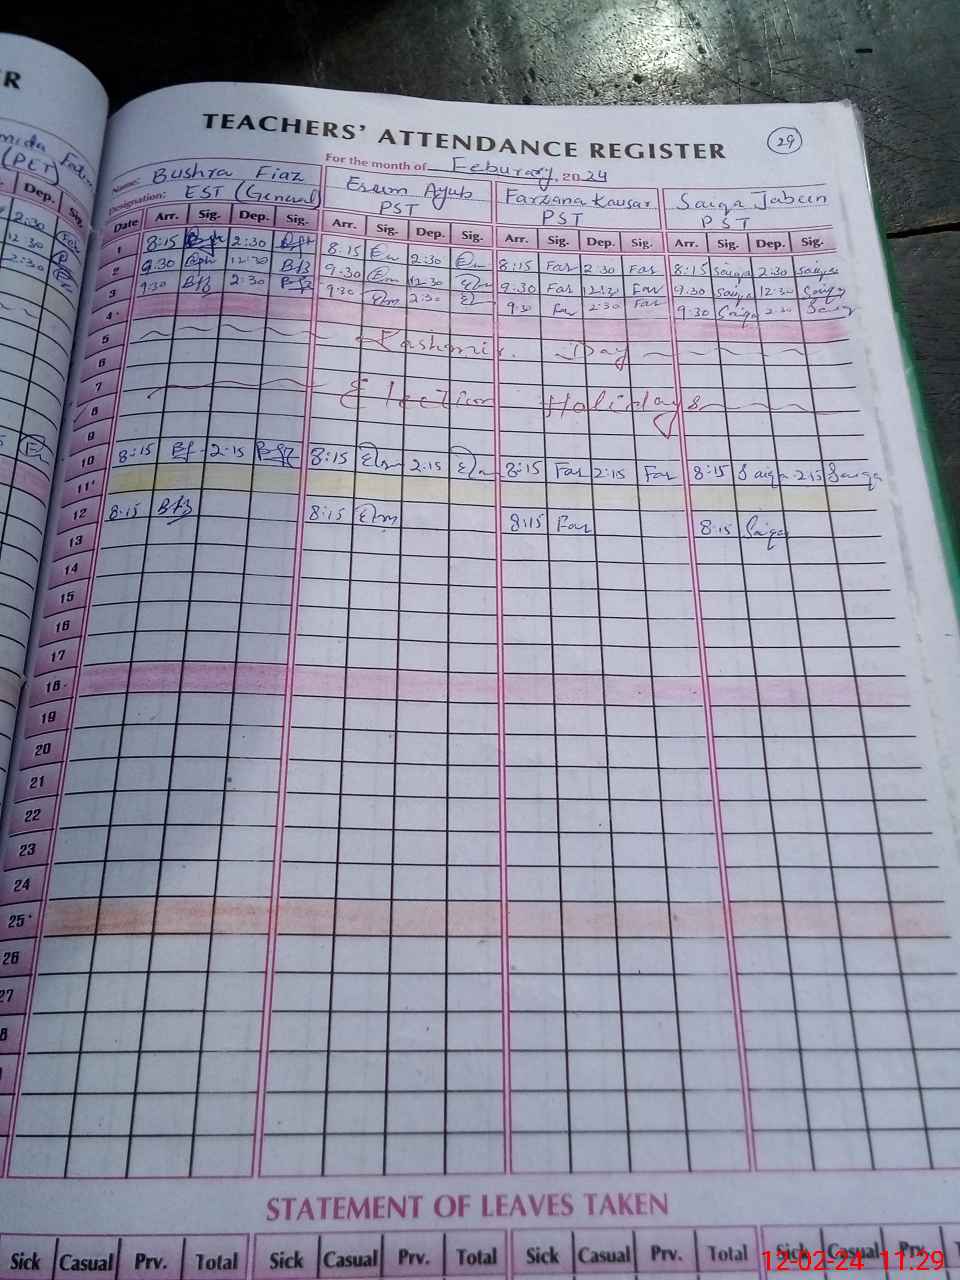 ER
TEACHERS' ATTENDANCE REGISTER
29
For the month of Feburary, 2024
Name: Bushra Fiaz
Designation: EST (General)
Esum Ayub
PST
Farzana Kausar
PST
Saiqa Jabeen
PST
(PET)
Dep. Sig.
Date Arr. Sig. Dep. Sig. Arr. Sig. Dep. Sig. Arr. Sig. Dep. Sig. Arr. Sig. Dep. Sig.
1 8:15 2:30 8:15 2:30 8:15 Far 2:30 Far 8:15 Saiqa 2:30 Saiqa
2 9:30 12:30 9:30 12:30 9:30 Far 12:30 Far 9:30 Saiqa 12:30 Saiqa
3 9:30 2:30 9:30 2:30 9:30 Far 2:30 Far 9:30 Saiqa 2:30 Saiqa
4
5 Kashmir Day
6
7 Election Holidays
8
9
10 8:15 2:15 8:15 2:15 8:15 Far 2:15 Far 8:15 Saiqa 2:15 Saiqa
11
12 8:15 8:15 8:15 Far 8:15 Saiqa
13
14
15
16
17
18
19
20
21
22
23
24
25
26
27
STATEMENT OF LEAVES TAKEN
Sick Casual Prv. Total Sick Casual Prv. Total Sick Casual Prv. Total Sick Casual Prv.
12-02-24 11:29